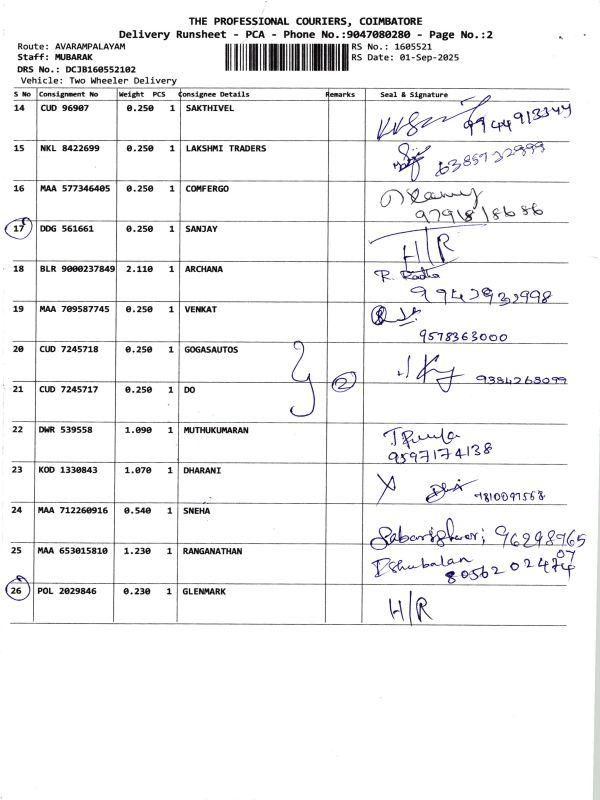 THE PROFESSIONAL COURIERS, COIMBATORE
Delivery Runsheet - PCA - Phone No.:9047080280 - Page No.:2
Route: AVARAMPALAYAM RS No.: 1605521
Staff: MUBARAK RS Date: 01-Sep-2025
DRS No.: DCJB160552102
Vehicle: Two Wheeler Delivery
S No Consignment No Weight PCS Consignee Details Remarks Seal & Signature
14 CUD 96907 0.250 1 SAKTHIVEL 9944913344
15 NKL 8422699 0.250 1 LAKSHMI TRADERS
16 MAA 577346405 0.250 1 COMFERGO
17 DDG 561661 0.250 1 SANJAY H/R
18 BLR 9000237849 2.110 1 ARCHANA R. Radha
9942932998
19 MAA 709587745 0.250 1 VENKAT
9578363000
20 CUD 7245718 0.250 1 GOGASAUTOS 9384268099
21 CUD 7245717 0.250 1 DO 2
22 DWR 539558 1.090 1 MUTHUKUMARAN
9597174138
23 KOD 1330843 1.070 1 DHARANI
24 MAA 712260916 0.540 1 SNEHA 96298965
07
25 MAA 653015810 1.230 1 RANGANATHAN
8056202474
26 POL 2029846 0.230 1 GLENMARK H/R